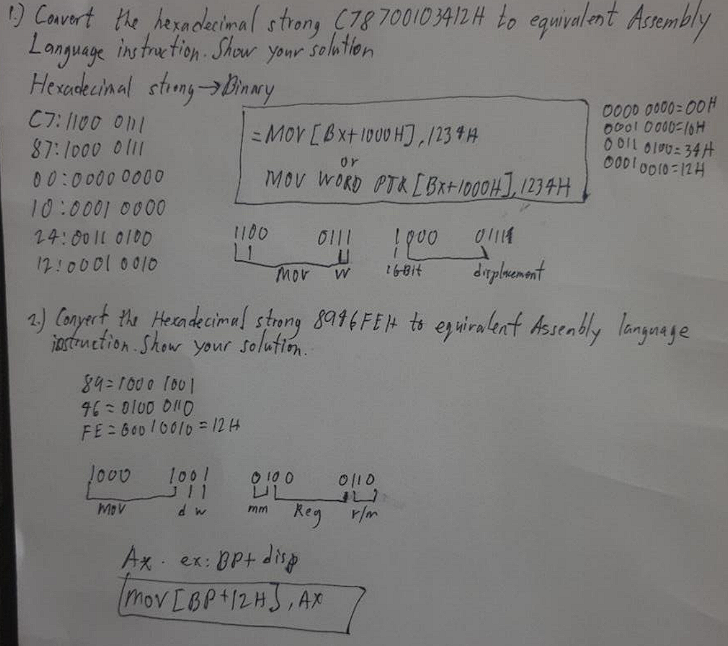 1.) Convert the hexadecimal strong C78700103412H to equivalent Assembly
Language instruction. Show your solution
Hexadecimal strong → Binary
C7: 1100 0111
87: 1000 0111
00: 0000 0000
10: 0001 0000
24: 0011 0100
12: 0001 0010
= MOV [BX+1000H], 1234H
or
MOV WORD PTR [BX+1000H], 1234H
0000 0000 = 00H
0001 0000 = 10H
0011 0100 = 34H
0001 0010 = 12H
1100 0111 1000 0111
Mov W 16Bit displacement
2.) Convert the Hexadecimal strong 8946FEH to equivalent Assembly language
instruction. Show your solution.
89 = 1000 1001
46 = 0100 0110
FE = 0001 0010 = 12H
1000 1001 0100 0110
Mov d w mm Reg r/m
Ax. ex: BP+ disp
Mov [BP+12H], AX